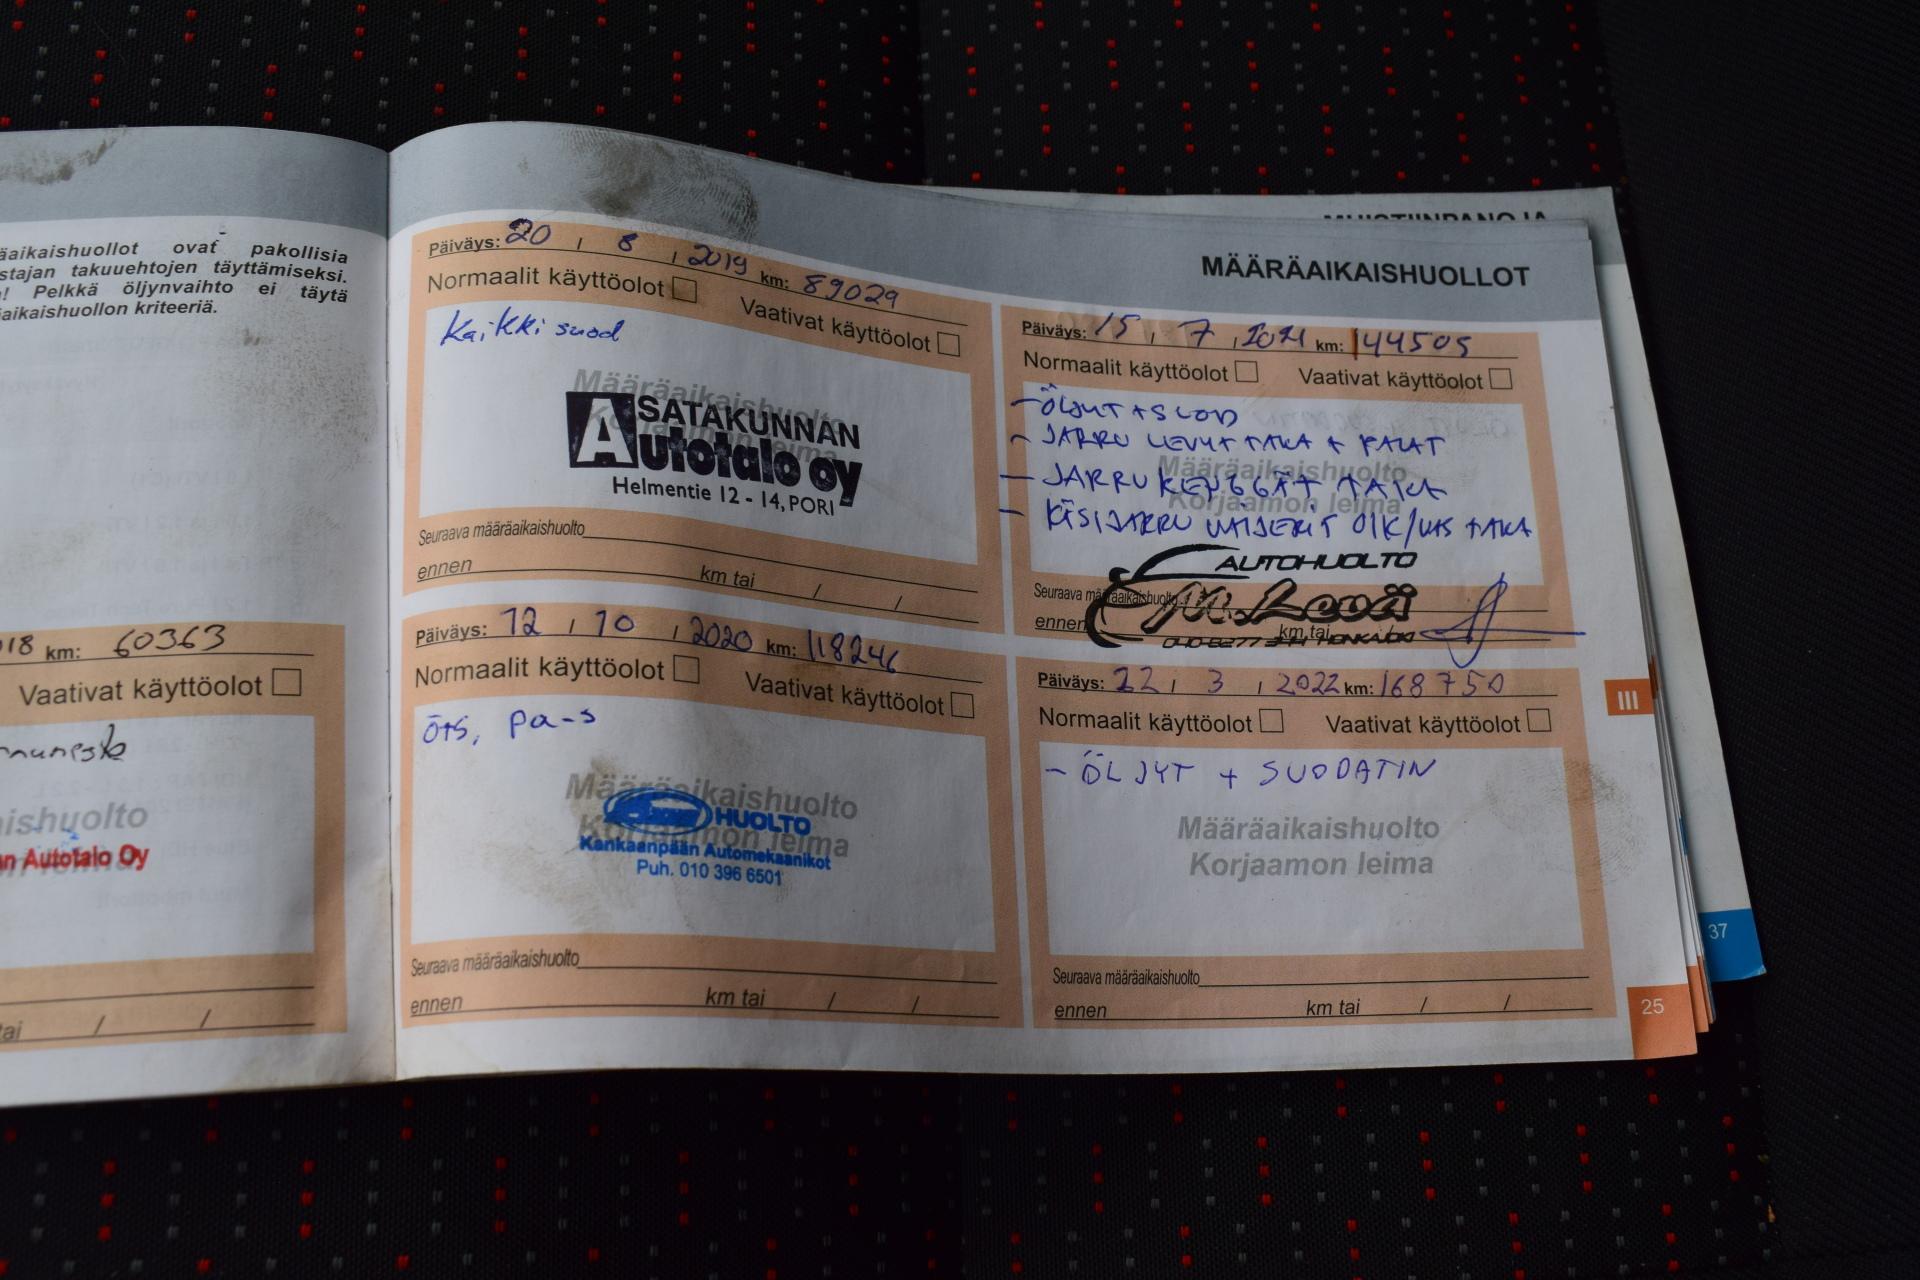 äaikaishuollot ovat pakollisia
stajan takuuehtojen täyttämiseksi.
! Pelkkä öljynvaihto ei täytä
aikaishuollon kriteeriä.
18 km: 60363
Vaativat käyttöolot
ishuolto
n Autotalo Oy
tai / /
MUISTIINPANOJA
MÄÄRÄAIKAISHUOLLOT
Päiväys: 20 / 8 / 2019 km: 89029
Normaalit käyttöolot
Vaativat käyttöolot
Kaikki suod
Määräaikaishuolto
Korjaamon leima
SATAKUNNAN
Autotalo oy
Helmentie 12 - 14, PORI
Seuraava määräaikaishuolto
ennen km tai / /
Päiväys: 12 / 10 / 2020 km: 118246
Normaalit käyttöolot
Vaativat käyttöolot
öts, pa-s
Määräaikaishuolto
Korjaamon leima
HUOLTO
Kankaanpään Automekaanikot
Puh. 010 396 6501
Seuraava määräaikaishuolto
ennen km tai / /
Päiväys: 15 / 7 / 2021 km: 144505
Normaalit käyttöolot
Vaativat käyttöolot
- ÖLJYT + SUOD
- JARRU LEVYT TAKA + PALAT
- JARRUKENGGÄT TAKA
- KÄSIJARRU VAIJERIT OIK/VAS TAKA
Määräaikaishuolto
Korjaamon leima
AUTOHUOLTO
M. Levä
HONKAJOKI
Seuraava määräaikaishuolto
ennen km tai
Päiväys: 22 / 3 / 2022 km: 168750
Normaalit käyttöolot
Vaativat käyttöolot
- ÖLJYT + SUODATIN
Määräaikaishuolto
Korjaamon leima
Seuraava määräaikaishuolto
ennen km tai / /
III
25
37